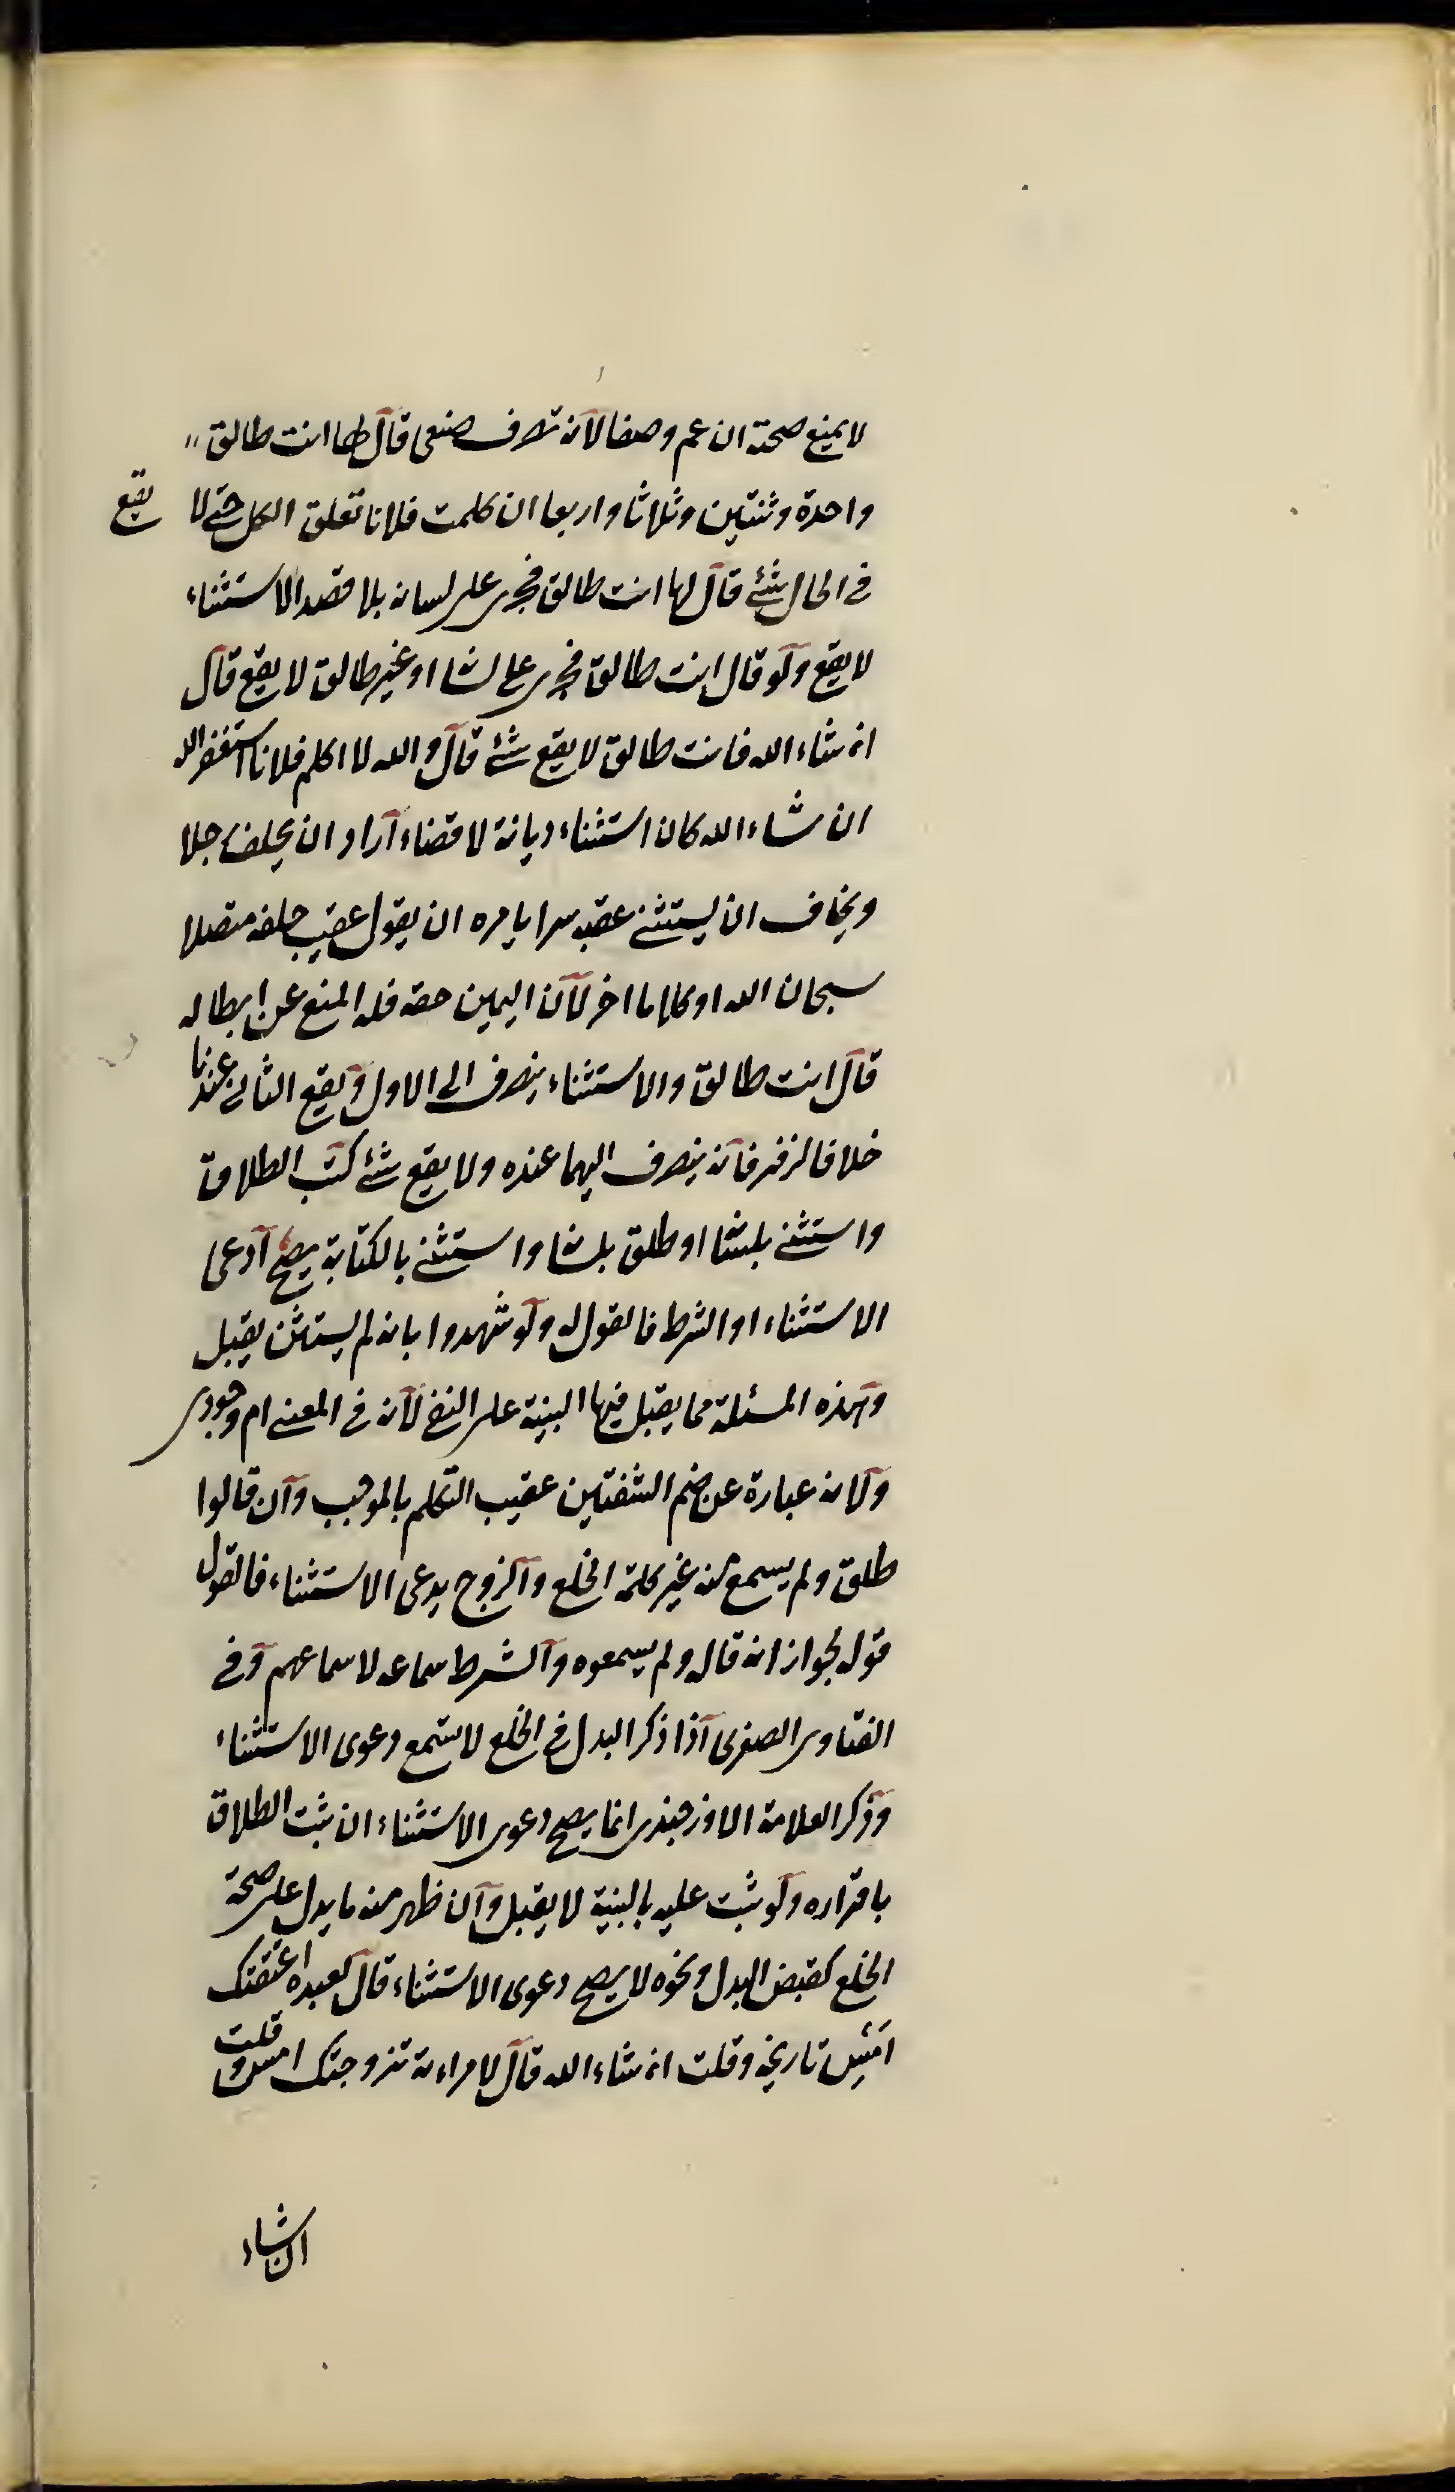 لا يمنع صحته ان عم وصفا لانه تصرف صنعى قال لها انت طالق
واحدة وثنتين وثلاثا واربعا ان كلمت فلانا تعلق الكل حتى لا يقع
فى الحال شئ قال لها انت طالق فجرى على لسانه بلا قصد الاستثناء
لا يقع ولو قال انت طالق فجرى على لسانه او غير طالق لا يقع قال
ان شاء الله فانت طالق لا يقع شئ قال والله لا اكلم فلانا استغفر الله
ان شاء الله كان استثناء ديانة لا قضاء اراد ان يحلف رجلا
ويخاف ان يستثنى عقبه سرا يامره ان يقول عقيب حلفه متصلا
سبحان الله او كلاما اخر لان اليمين حقه فله المنع عن ابطاله
قال انت طالق والاستثناء ينصرف الى الاول ويقع الثانى عندنا
خلافا لزفر فانه ينصرف اليهما عنده ولا يقع شئ كتب الطلاق
واستثنى بلسانه او طلق بلسانه واستثنى بالكتابة يصح ادعى
الاستثناء او الشرط فالقول له ولو شهدوا بانه لم يستثن يقبل
وهذه المسئلة مما يقبل فيها البينة على النفى لانه فى المعنى امر وجودى
ولانه عبارة عن ضم الشفتين عقيب التكلم بالموجب وان قالوا
طلق ولم يسمع منه غير كلمة الخلع والزوج يدعى الاستثناء فالقول
قوله لجواز انه قاله ولم يسمعوه والشرط سماعه لا سماعهم وفى
الفتاوى الصغرى اذا ذكر البدل فى الخلع لا تسمع دعوى الاستثناء
وذكر العلامة الاوزجندى انما يصح دعوى الاستثناء ان ثبت الطلاق
باقراره ولو ثبت عليه بالبينة لا يقبل وان ظهر منه ما يدل على صحة
الخلع كقبض البدل ونحوه لا يصح دعوى الاستثناء قال لعبده اعتقتك
امس وقلت ان شاء الله قال لامراءته تزوجتك امس وقلت
ان شاء